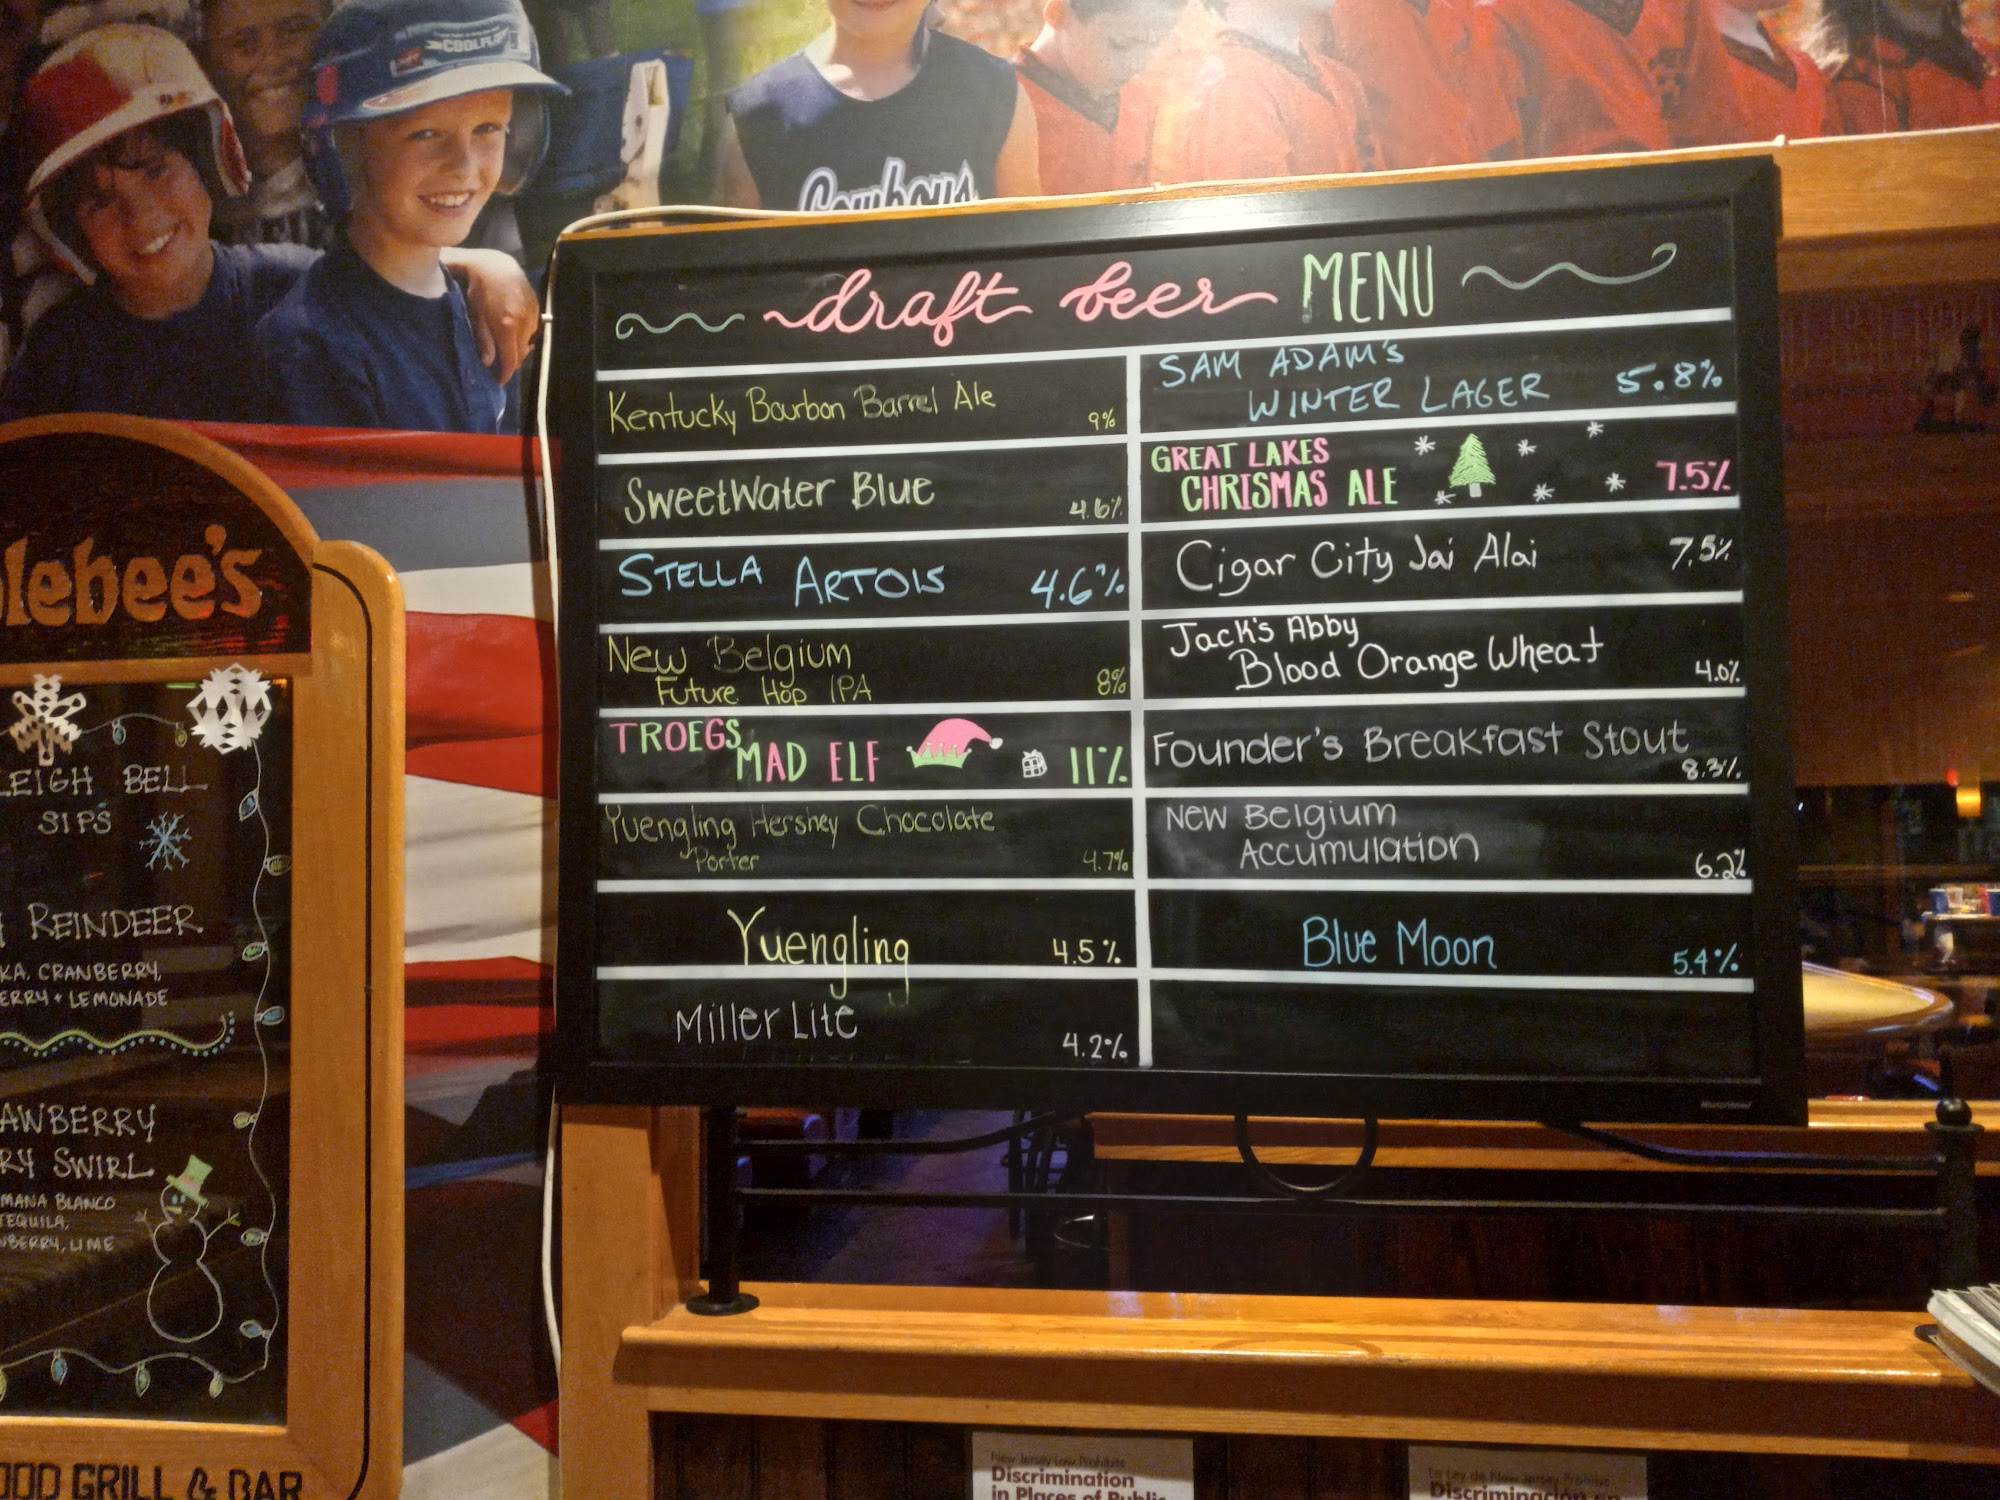 COOLFLO
Cowboys
draft beer MENU
Kentucky Bourbon Barrel Ale 9%
SweetWater Blue 4.6%
STELLA ARTOIS 4.6%
New Belgium
Future Hop IPA 8%
TROEGS
MAD ELF 11%
Yuengling Hershey Chocolate
Porter 4.7%
Yuengling 4.5%
Miller Lite 4.2%
SAM ADAM'S
WINTER LAGER 5.8%
GREAT LAKES
CHRISMAS ALE 7.5%
Cigar City Jai Alai 7.5%
Jack's Abby
Blood Orange Wheat 4.0%
Founder's Breakfast Stout
8.3%
New Belgium
Accumulation 6.2%
Blue Moon 5.4%
lebee's
LEIGH BELL
SIPS
REINDEER
KA, CRANBERRY,
ERRY + LEMONADE
AWBERRY
RY SWIRL
MANA BLANCO
TEQUILA,
NBERRY, LIME
OOD GRILL & BAR
New Jersey Law Prohibits
Discrimination
in Places of Public
La Ley de New Jersey Prohíbe
Discriminación en